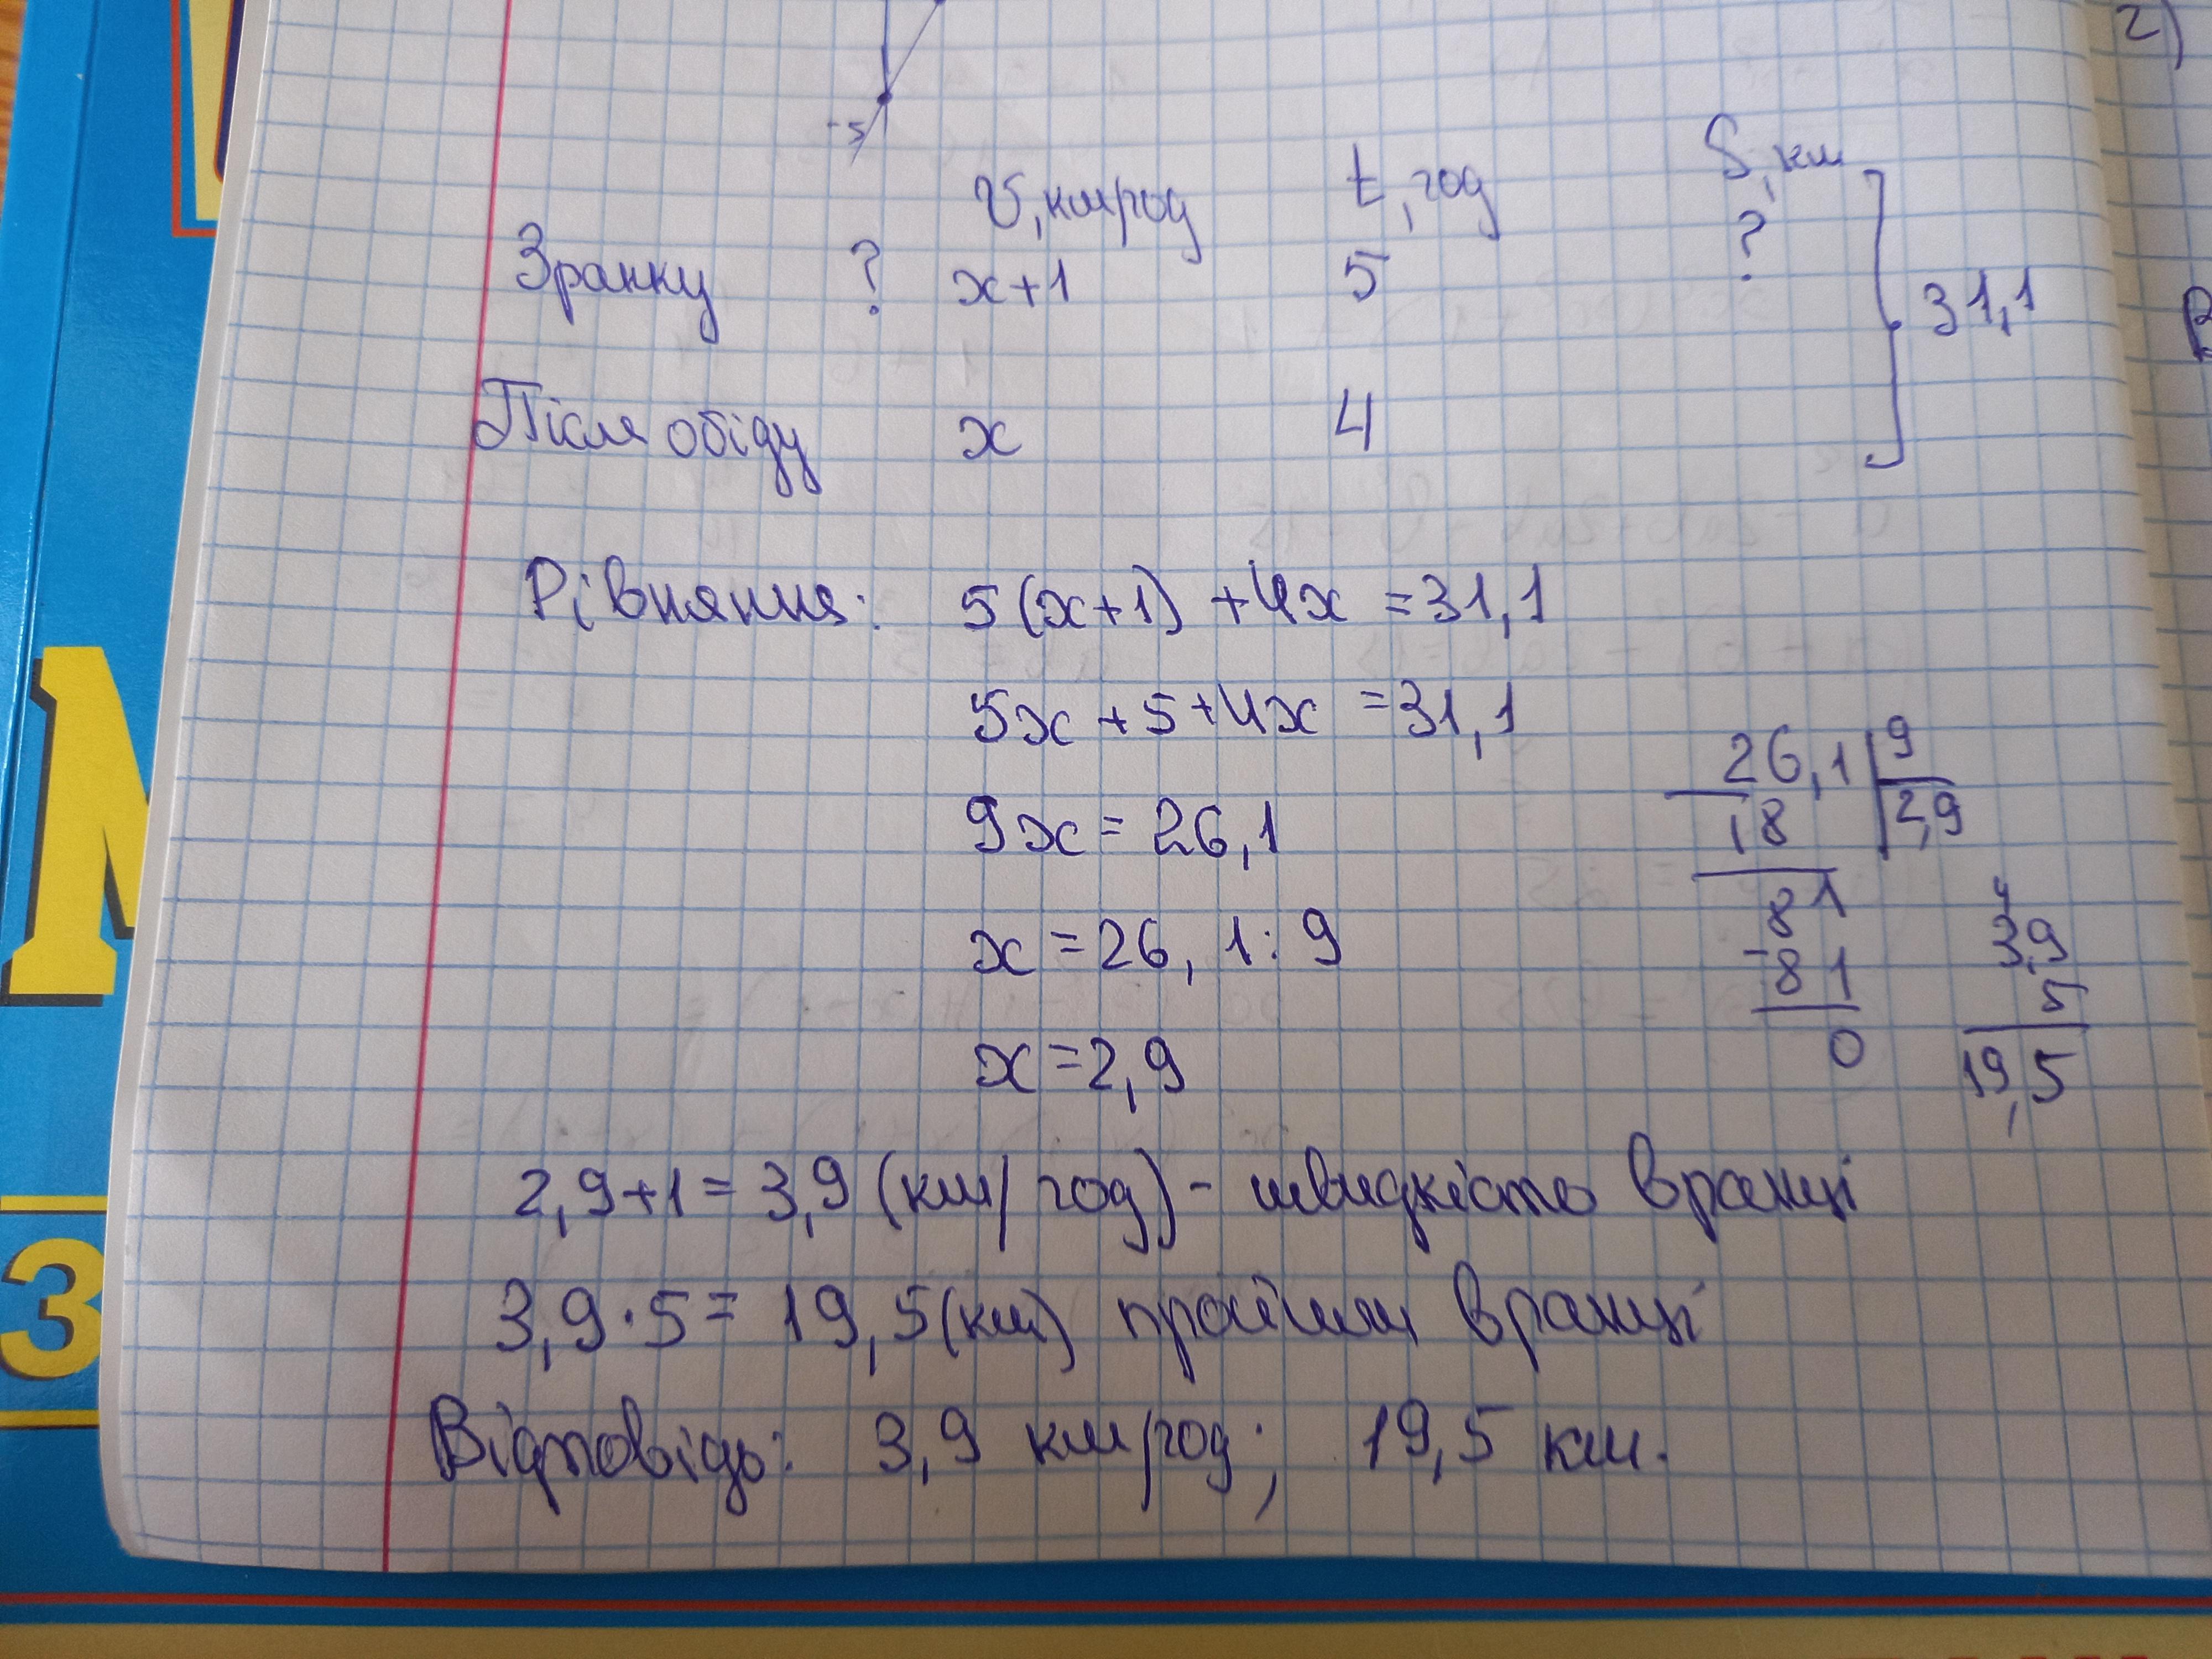 2)
-5
V, км/год t, год S, км
Зранку ? x+1 5 ?
31,1
Після обіду x 4
Рівняння: 5(x+1)+4x=31,1
5x+5+4x=31,1
9x=26,1
x=26,1:9
x=2,9
26,1 9
18 2,9
81
-81
0
4
3,9
5
19,5
2,9+1=3,9 (км/год) - швидкість вранці
3,9·5=19,5(км) пройшли вранці
Відповідь: 3,9 км/год; 19,5 км.
М
3